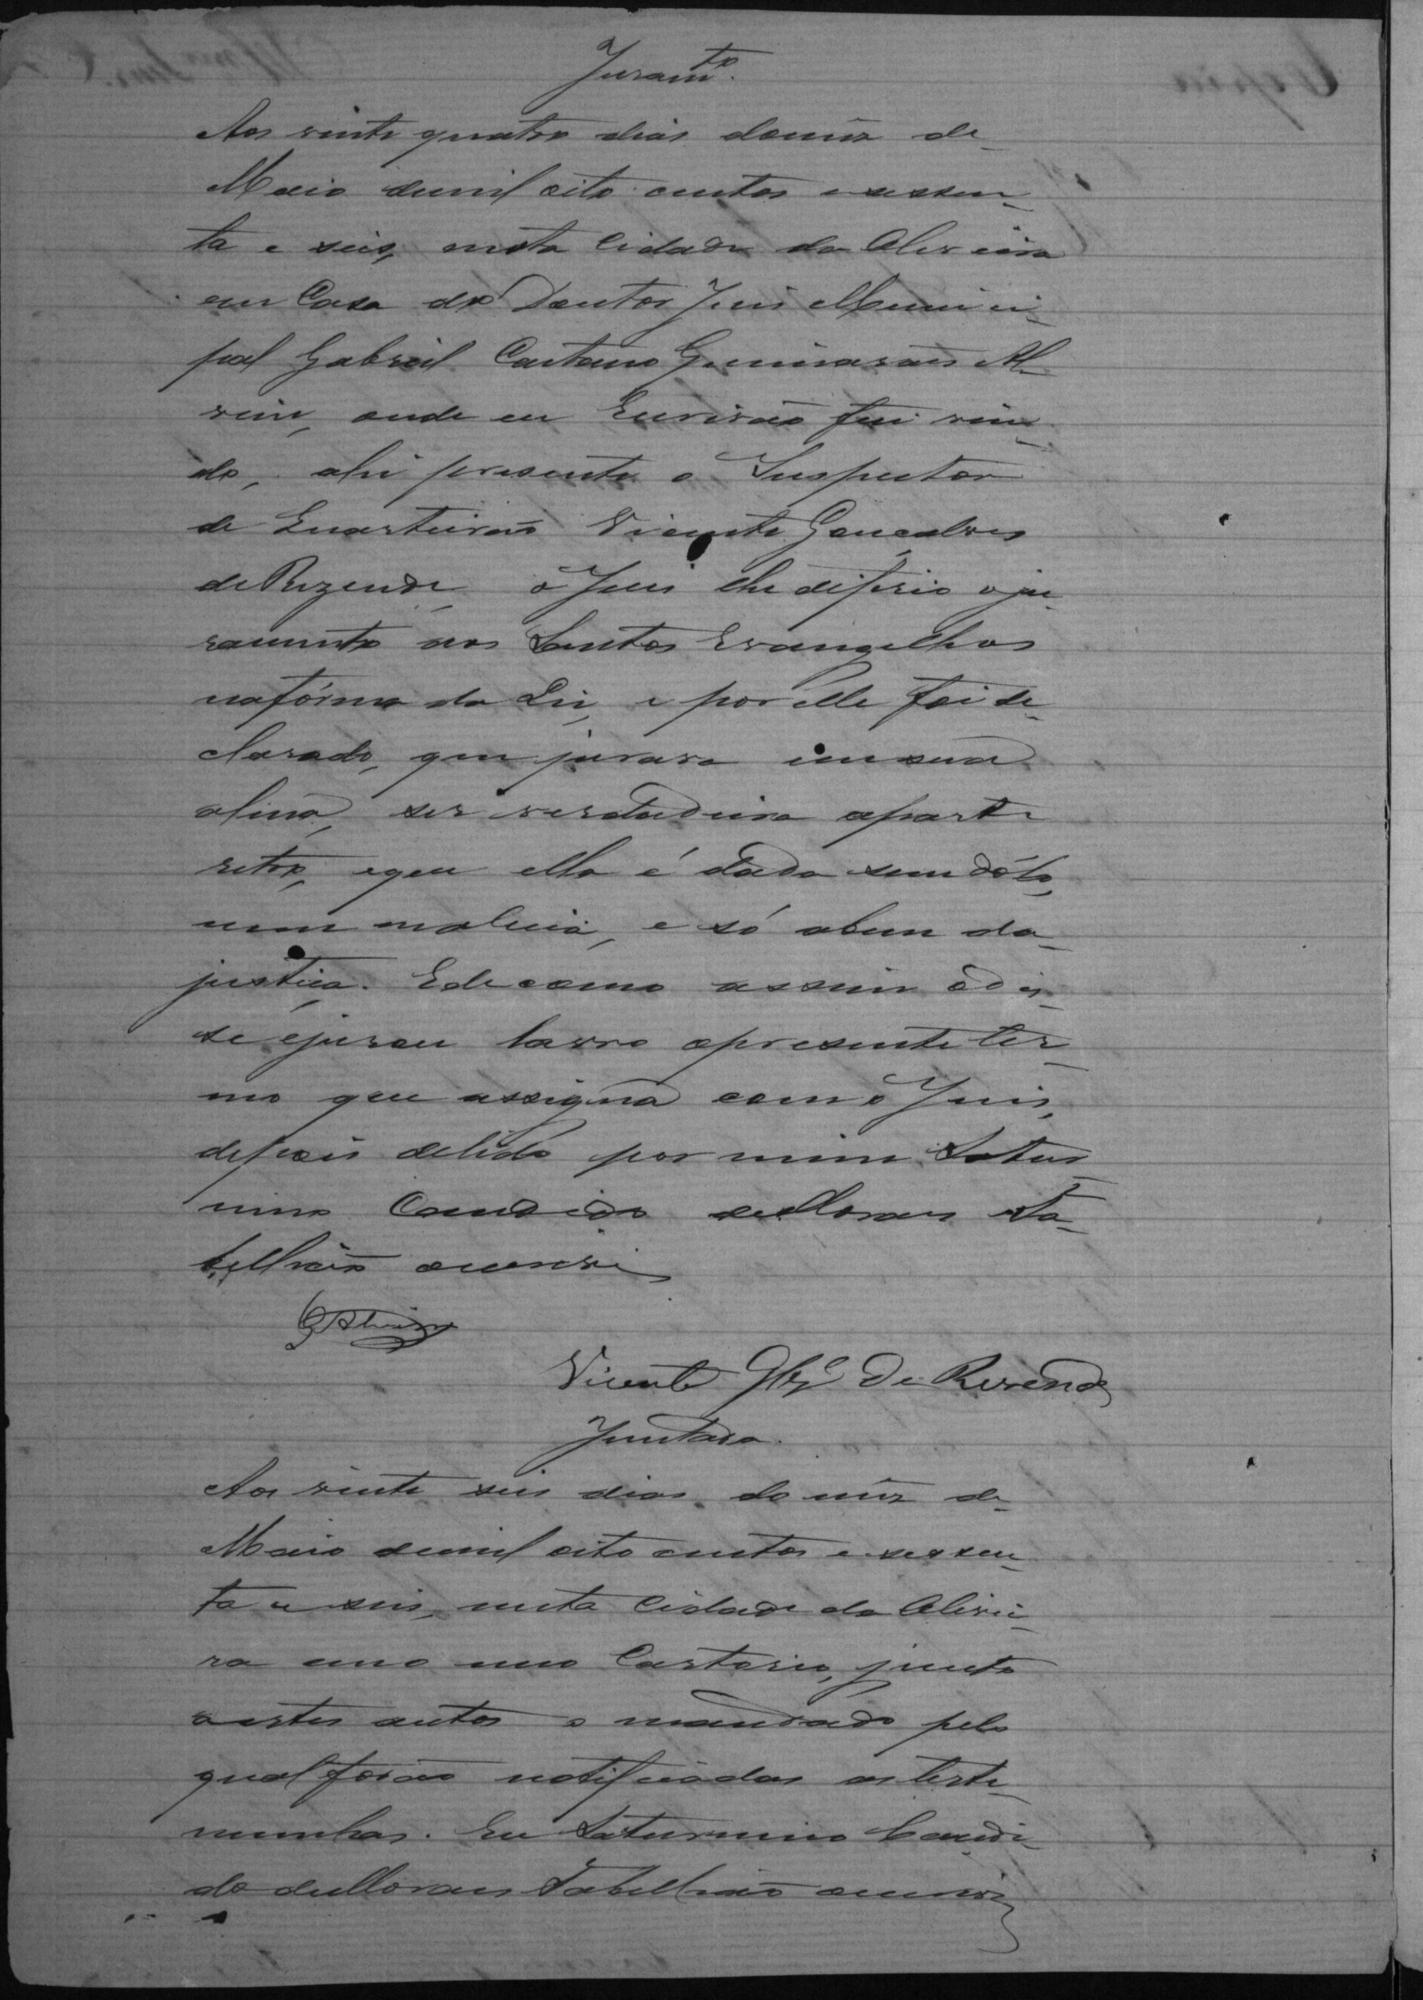 Juramto.
Aos vinte quatro dias domez de
Maio demil oito centos e sessen-
ta e seis, nesta Cidade da Oliveira
em Casa do Doutor Juis Munici-
pal Gabriel Caetano Guimaraes Al-
vim, onde eu Escrivão fui vin-
do, ahi presente o Inspector
de Quarteirão Vicente Gonçalves
de Rezende o Juis lhe diferio o ju-
ramento aos Santos Evangelhos
nafórma da Lei, e por elle foi de-
clarado, que jurava em sua
alma, ser verdadeira aparte
retro, eque ella é dada sem dólo,
nem malicia, e só abem da
justiça. Edecomo assim odis-
se ejurou lavro opresente ter-
mo que assigna com o Juis,
depois delido por mim Satur-
nino Candido deMoraes Ta-
bellião oescrevi
GAlvim
Vicente Glz' de Resende
Juntada.
Aos vinte seis dias do mez de
Maio demil oito centos e sessen-
ta e seis, nesta Cidade da Olivei-
ra emo meo Cartorio, junto
aestes autos o mandado pelo
qual forão notificadas as teste-
munhas. Eu Saturnino Candi-
do deMoraes Tabellião oescrevi